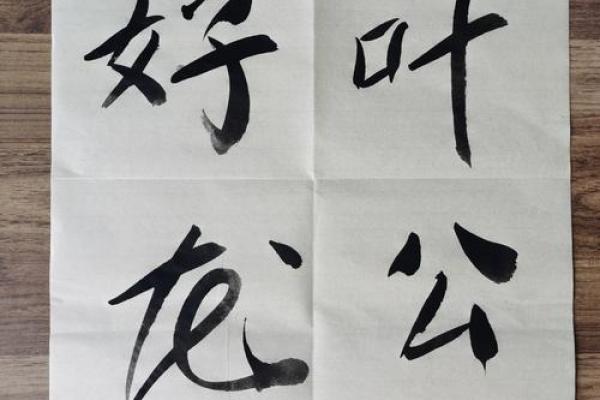 叶公
好龙